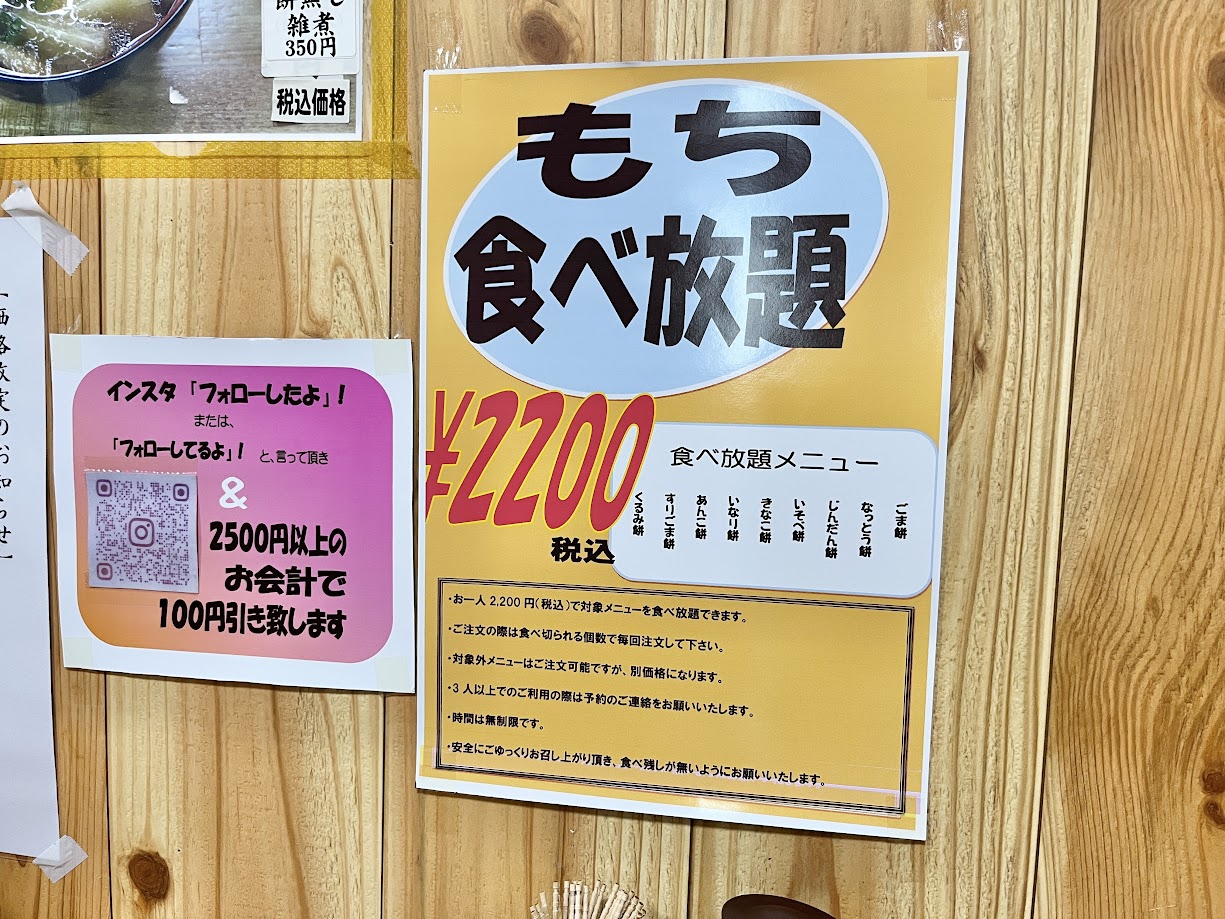 雑煮
350円
税込価格
価格改定のお知らせ
インスタ「フォローしたよ」!
または、
「フォローしてるよ」! と、言って頂き
&
2500円以上の
お会計で
100円引き致します
もち
食べ放題
¥2200
税込
食べ放題メニュー
ごま餅
なっとう餅
じんだん餅
いそべ餅
きなこ餅
いなり餅
あんこ餅
すりごま餅
くるみ餅
・お一人 2,200 円(税込)で対象メニューを食べ放題できます。
・ご注文の際は食べ切られる個数で毎回注文して下さい。
・対象外メニューはご注文可能ですが、別価格になります。
・3 人以上でのご利用の際は予約のご連絡をお願いいたします。
・時間は無制限です。
・安全にごゆっくりお召し上がり頂き、食べ残しが無いようにお願いいたします。